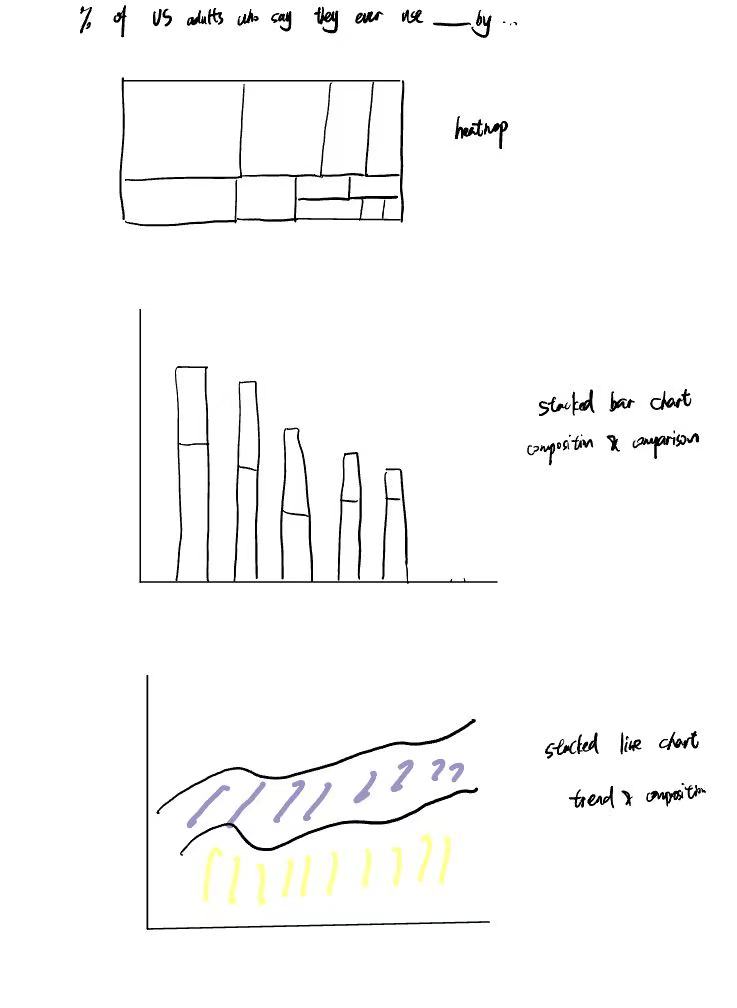 % of US adults who say they ever use ____ by ...
heatmap
stacked bar chart
composition & comparison
stacked line chart
trend & composition